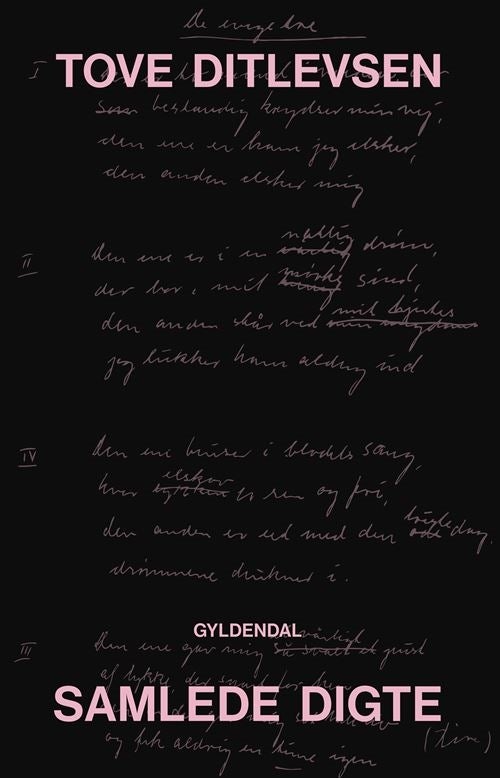 De evige tre
I
TOVE DITLEVSEN
bestandig krydser min vej,
den ene er ham jeg elsker,
den anden elsker mig
natlig
II
Den ene er i en drøm,
mørke
der bor i mit sind,
mit hjertes
den anden står ved
jeg lukker ham aldrig ind
IV
Den ene bruser i blodets sang,
elskov
hvor er ren og fri,
den anden er eet med den dag,
drømmene drukner i.
GYLDENDAL
III
Den ene gav mig pust
af lykke, der
SAMLEDE DIGTE
og fik aldrig en time igen
(Time)